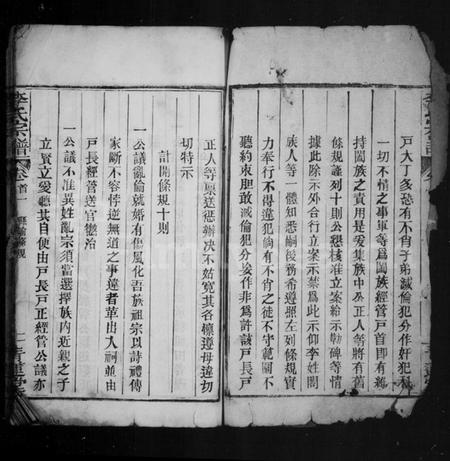 戶大丁多恐有不肖子弟滅倫犯分作奸犯科
一切不情之事軍等爲闔族經管戶首即有紏
持闔族之責用是爰集族中公正人等將有舊
條規謹列十則公懇核准立案給示勒碑等情
據此除示外合行立案示禁爲此示仰李姓闔
族人等一體知悉嗣後務希遵照左列條規實
力奉行不得違犯倘有不肖之徒不守範圍不
聽約束胆敢滅倫犯分妄作非爲許該戶長戶
正人等稟送懲辦决不姑寬其各懔遵毋違切
切特示
計開條規十則
一公議亂倫就婚有傷風化吾族祖宗以詩禮傳
家斷不容悖逆無道之事違者革出入祠並由
戶長經管送官懲治
一公議不准異姓亂宗須當選擇族內近親之子
立賢立愛聽其自便由戶長戶正經管公議亦
李氏宗譜 卷首一